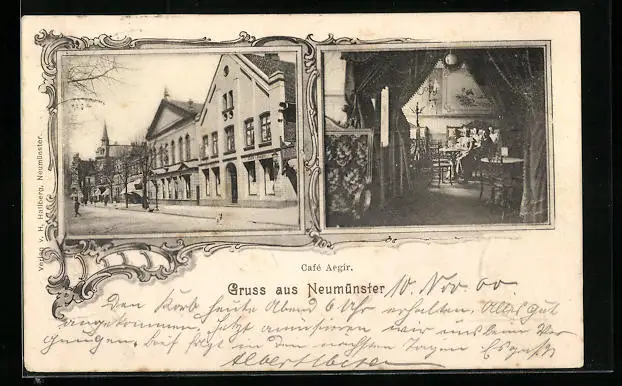 Verlag v. H. Hallberg, Neumünster.
Café Aegir.
Gruss aus Neumünster 10. Nov. 00.
Den Korb heute Abend 6 Uhr erhalten, Alles gut
angekommen, Jetzt amüsieren wir uns beim Ver
gnügen, Brief folgt in den nächsten Tagen